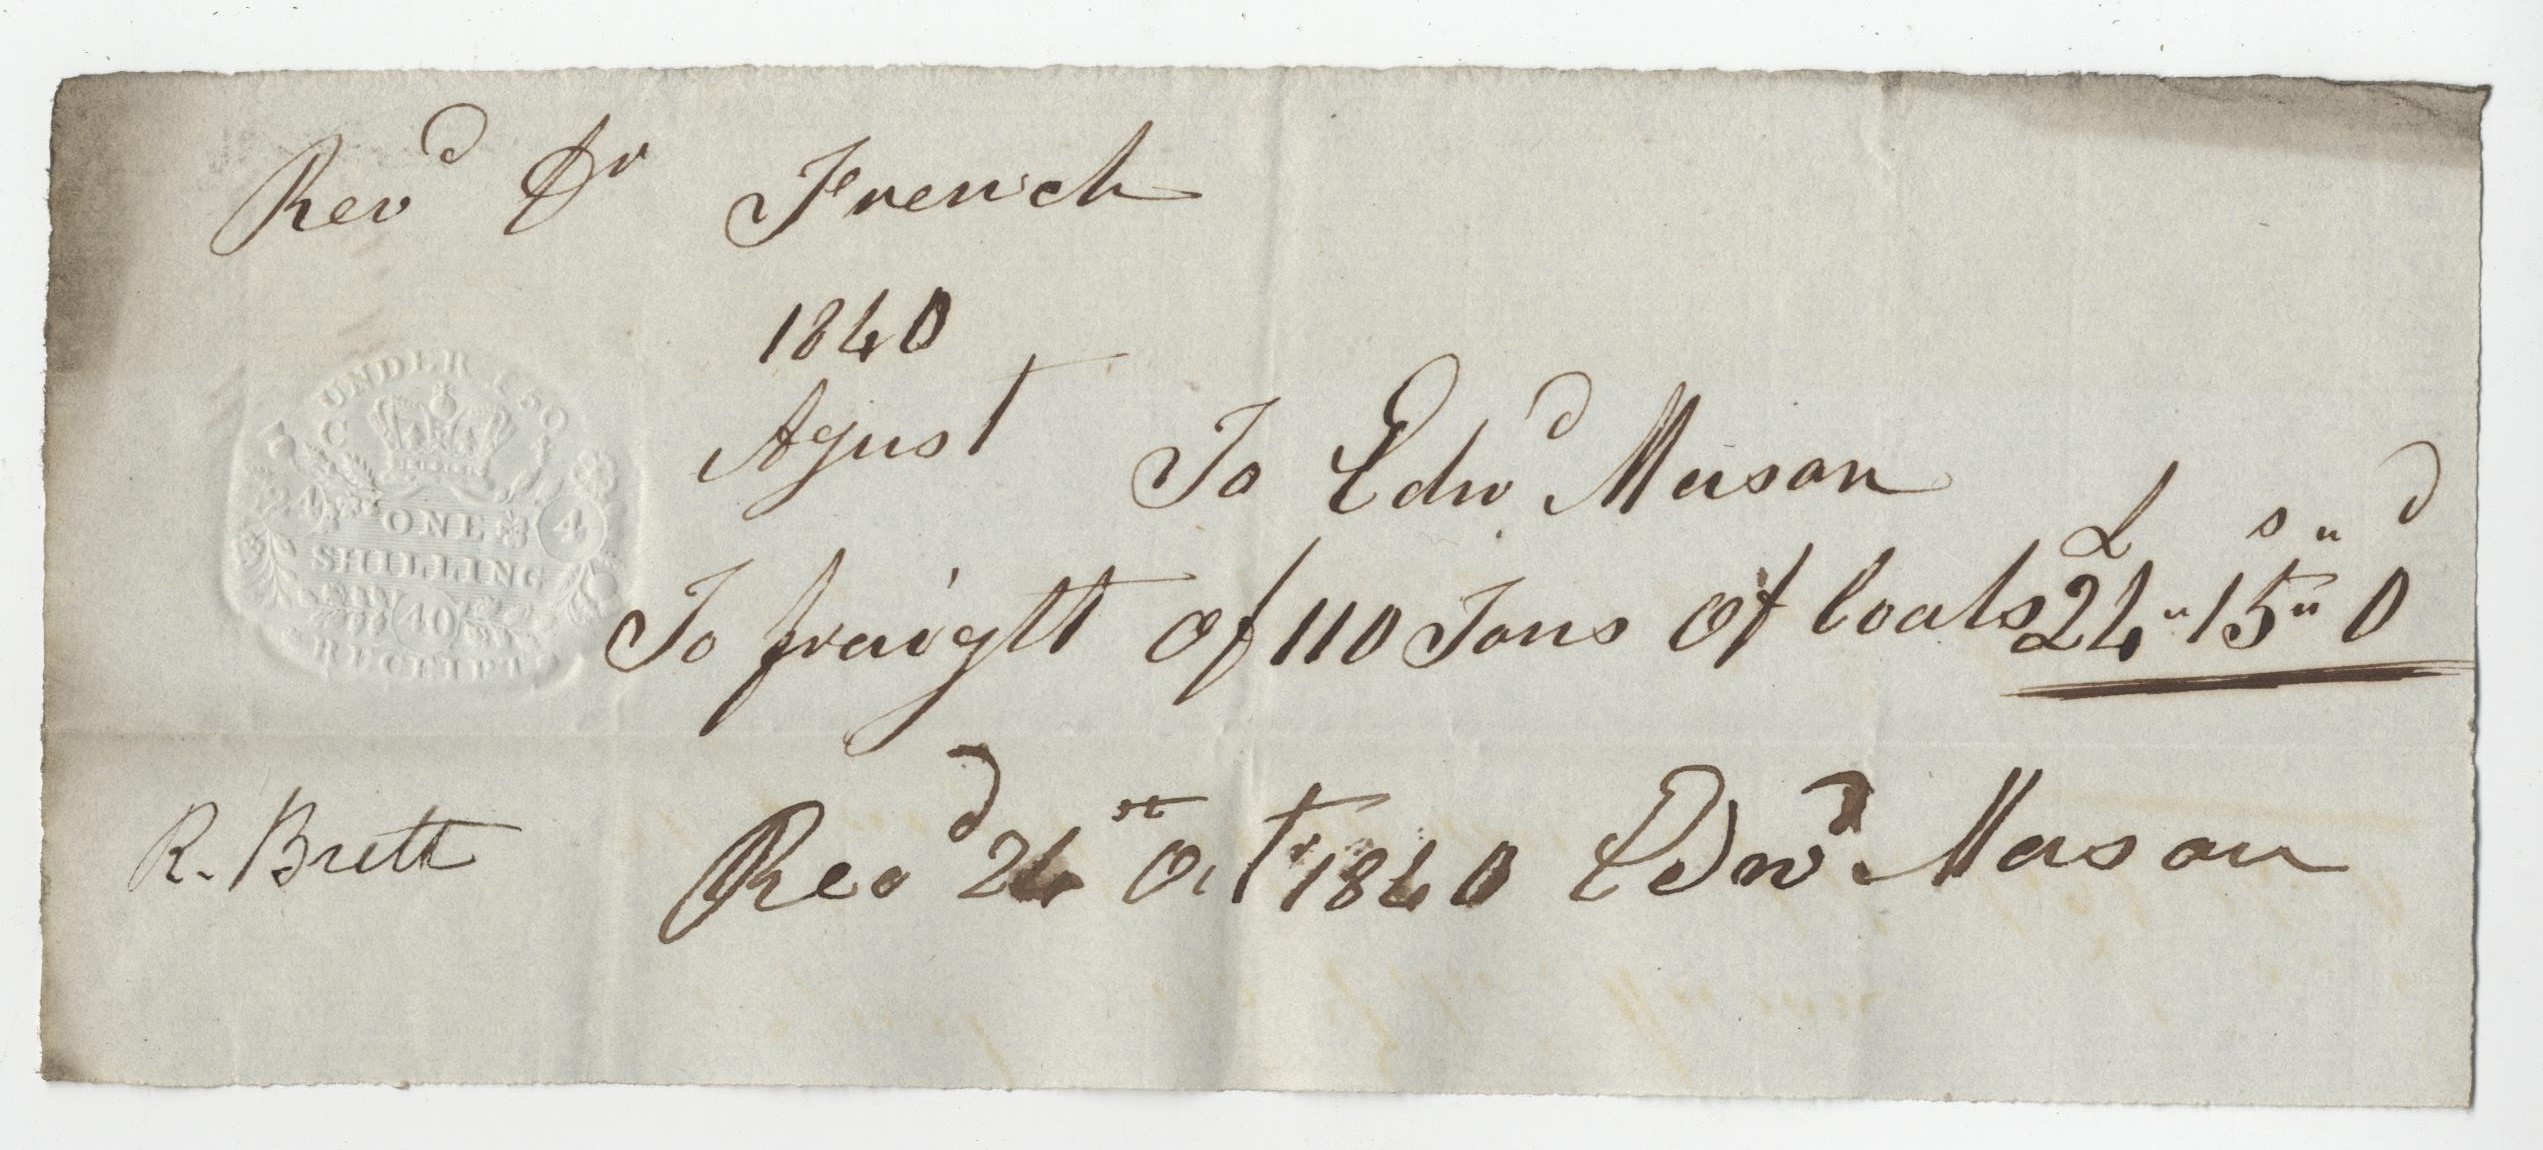 Revd Dr French
1840
Agust To Edwd Mason
£ s " d
To fraigtt of 110 Tons of Coals 24 " 15 " 0
R. Brett Recd 24st Oct 1840 Edwd Mason
UNDER £50
24 ONE 4
SHILLING
40
RECEIPT